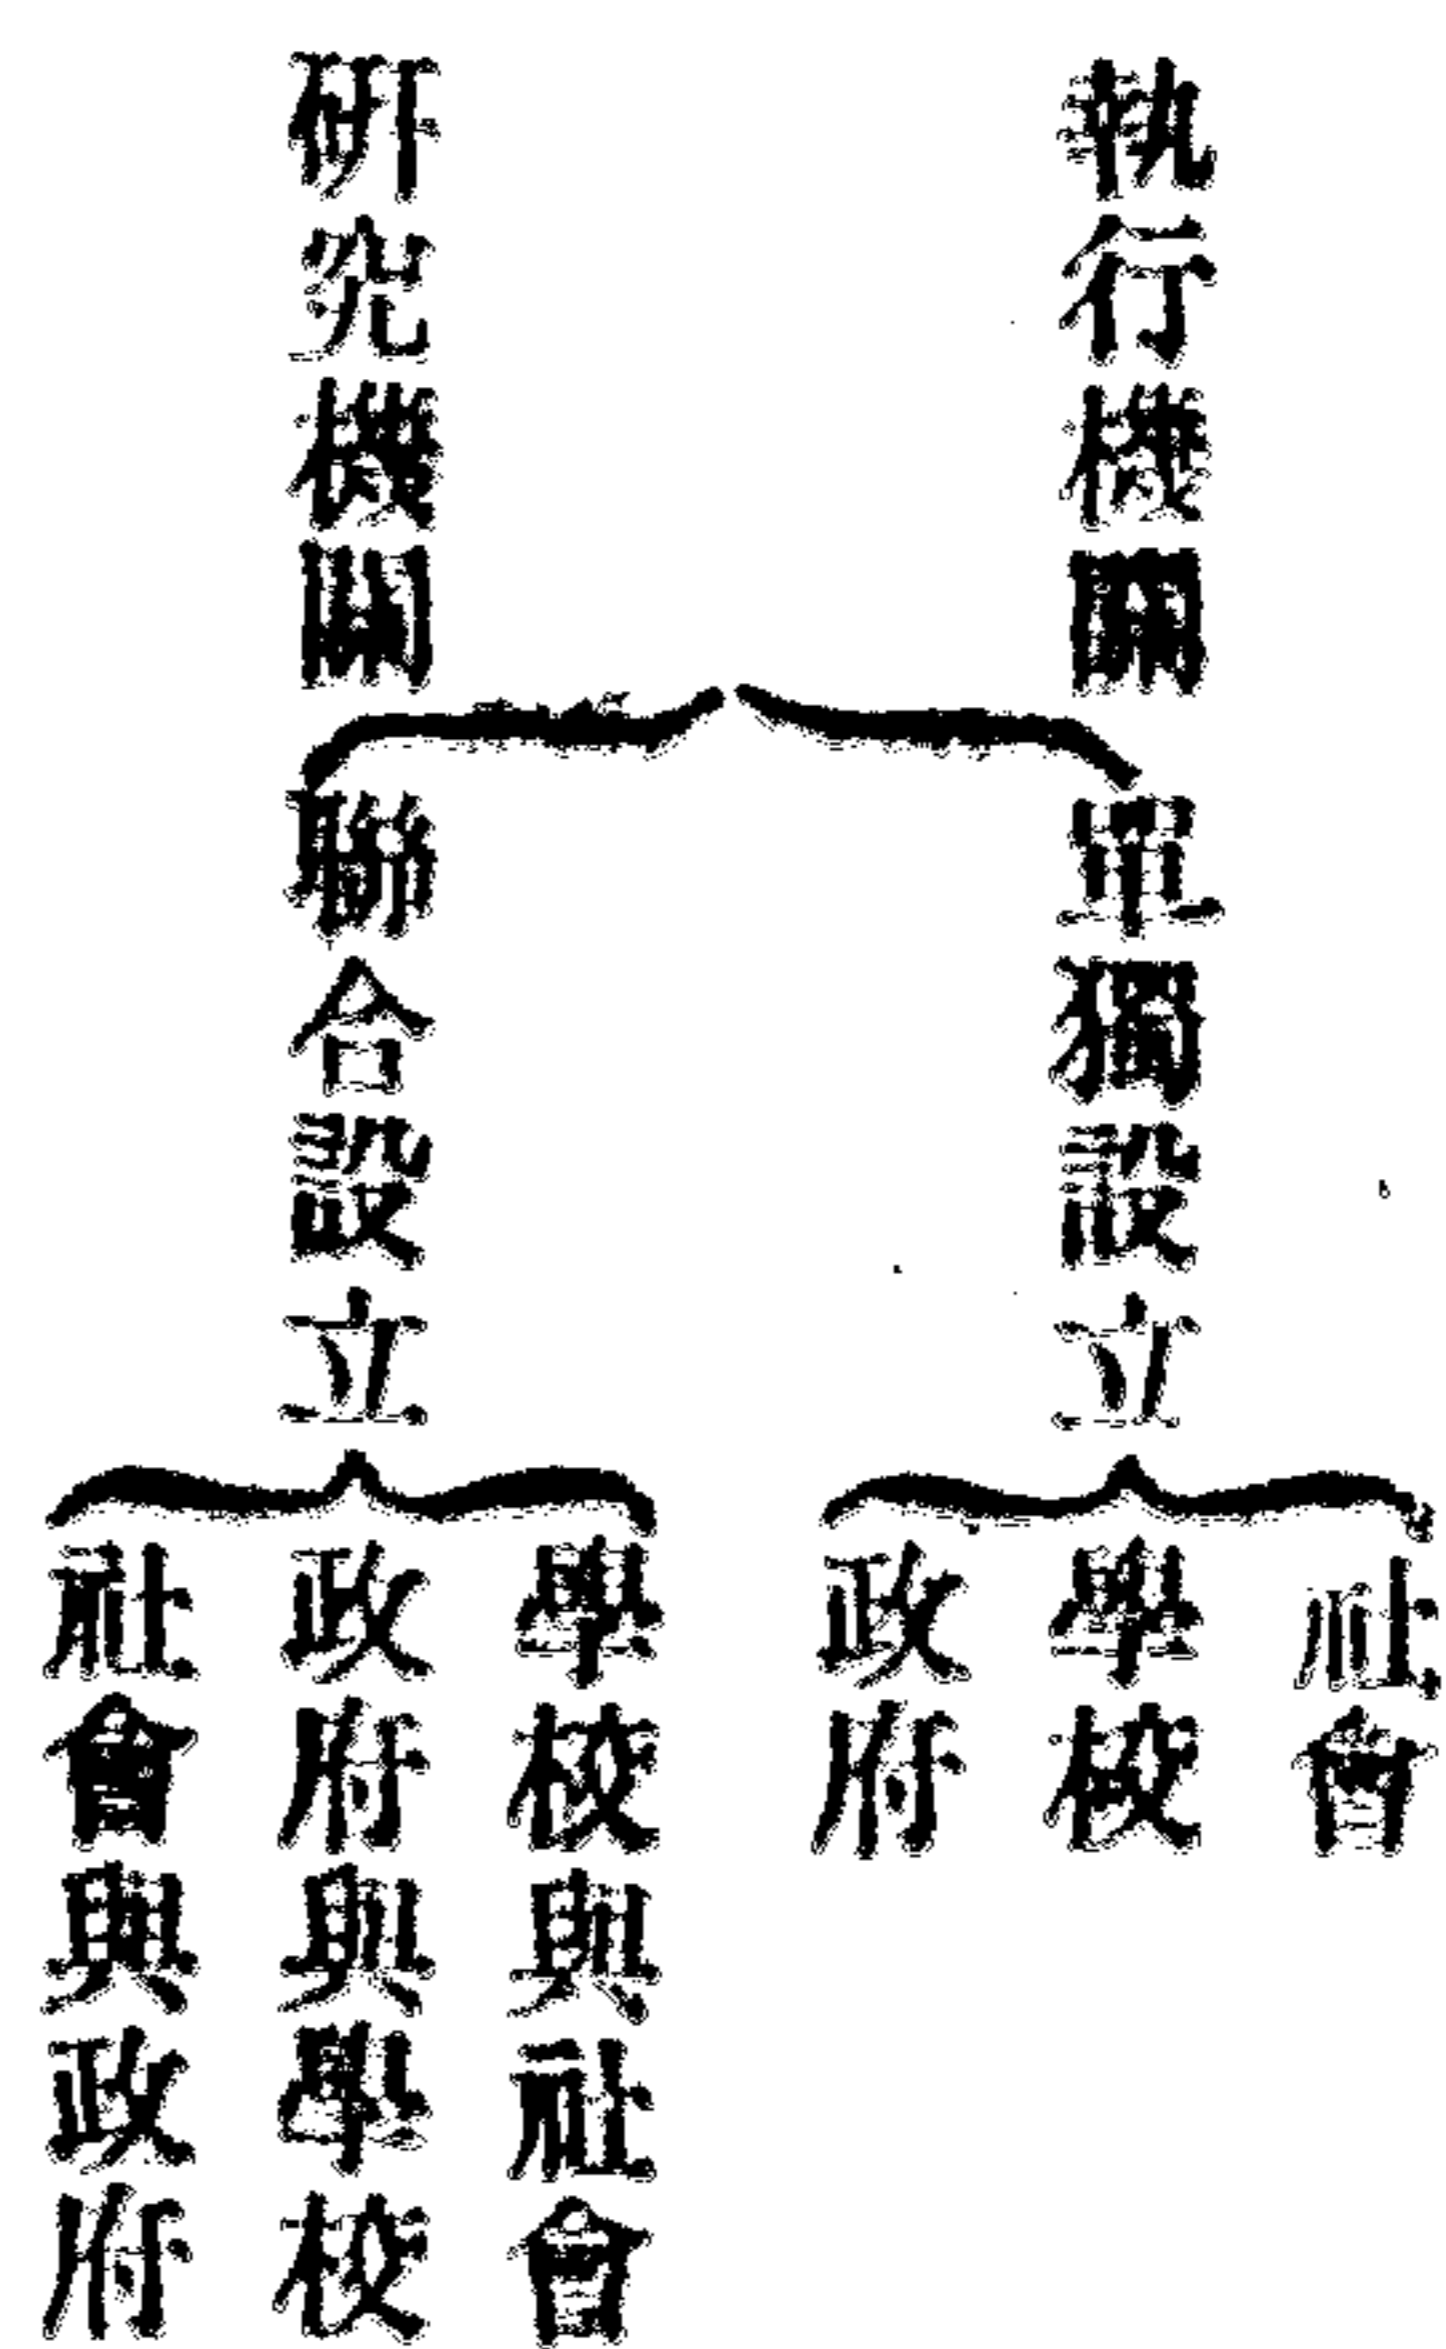 執行機關
研究機關
單獨設立
聯合設立
社會
學校
政府
學校與社會
政府與學校
社會與政府